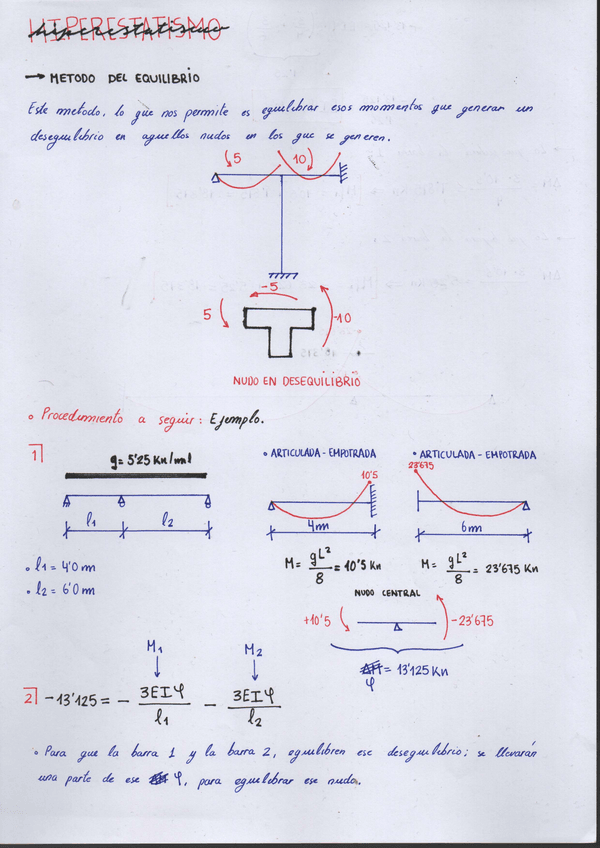 HIPERESTATISMO
hiperestatismo
→ METODO DEL EQUILIBRIO
Este metodo, lo que nos permite es equilibrar esos momentos que generan un
desequilibrio en aquellos nudos en los que se generen.
5 10
-5
5 -10
NUDO EN DESEQUILIBRIO
• Procedimiento a seguir: Ejemplo.
1]
q = 5'25 Kn/ml
l1 l2
• l1 = 4'0 m
• l2 = 6'0 m
• ARTICULADA - EMPOTRADA
10'5
4m
M = qL²/8 = 10'5 Kn
• ARTICULADA - EMPOTRADA
23'675
6m
M = qL²/8 = 23'675 Kn
NUDO CENTRAL
+10'5 -23'675
φ = 13'125 Kn
M1 M2
2] -13'125 = - 3EIφ/l1 - 3EIφ/l2
• Para que la barra 1 y la barra 2, equilibren ese desequilibrio; se llevarán
una parte de ese φ, para equilibrar ese nudo.